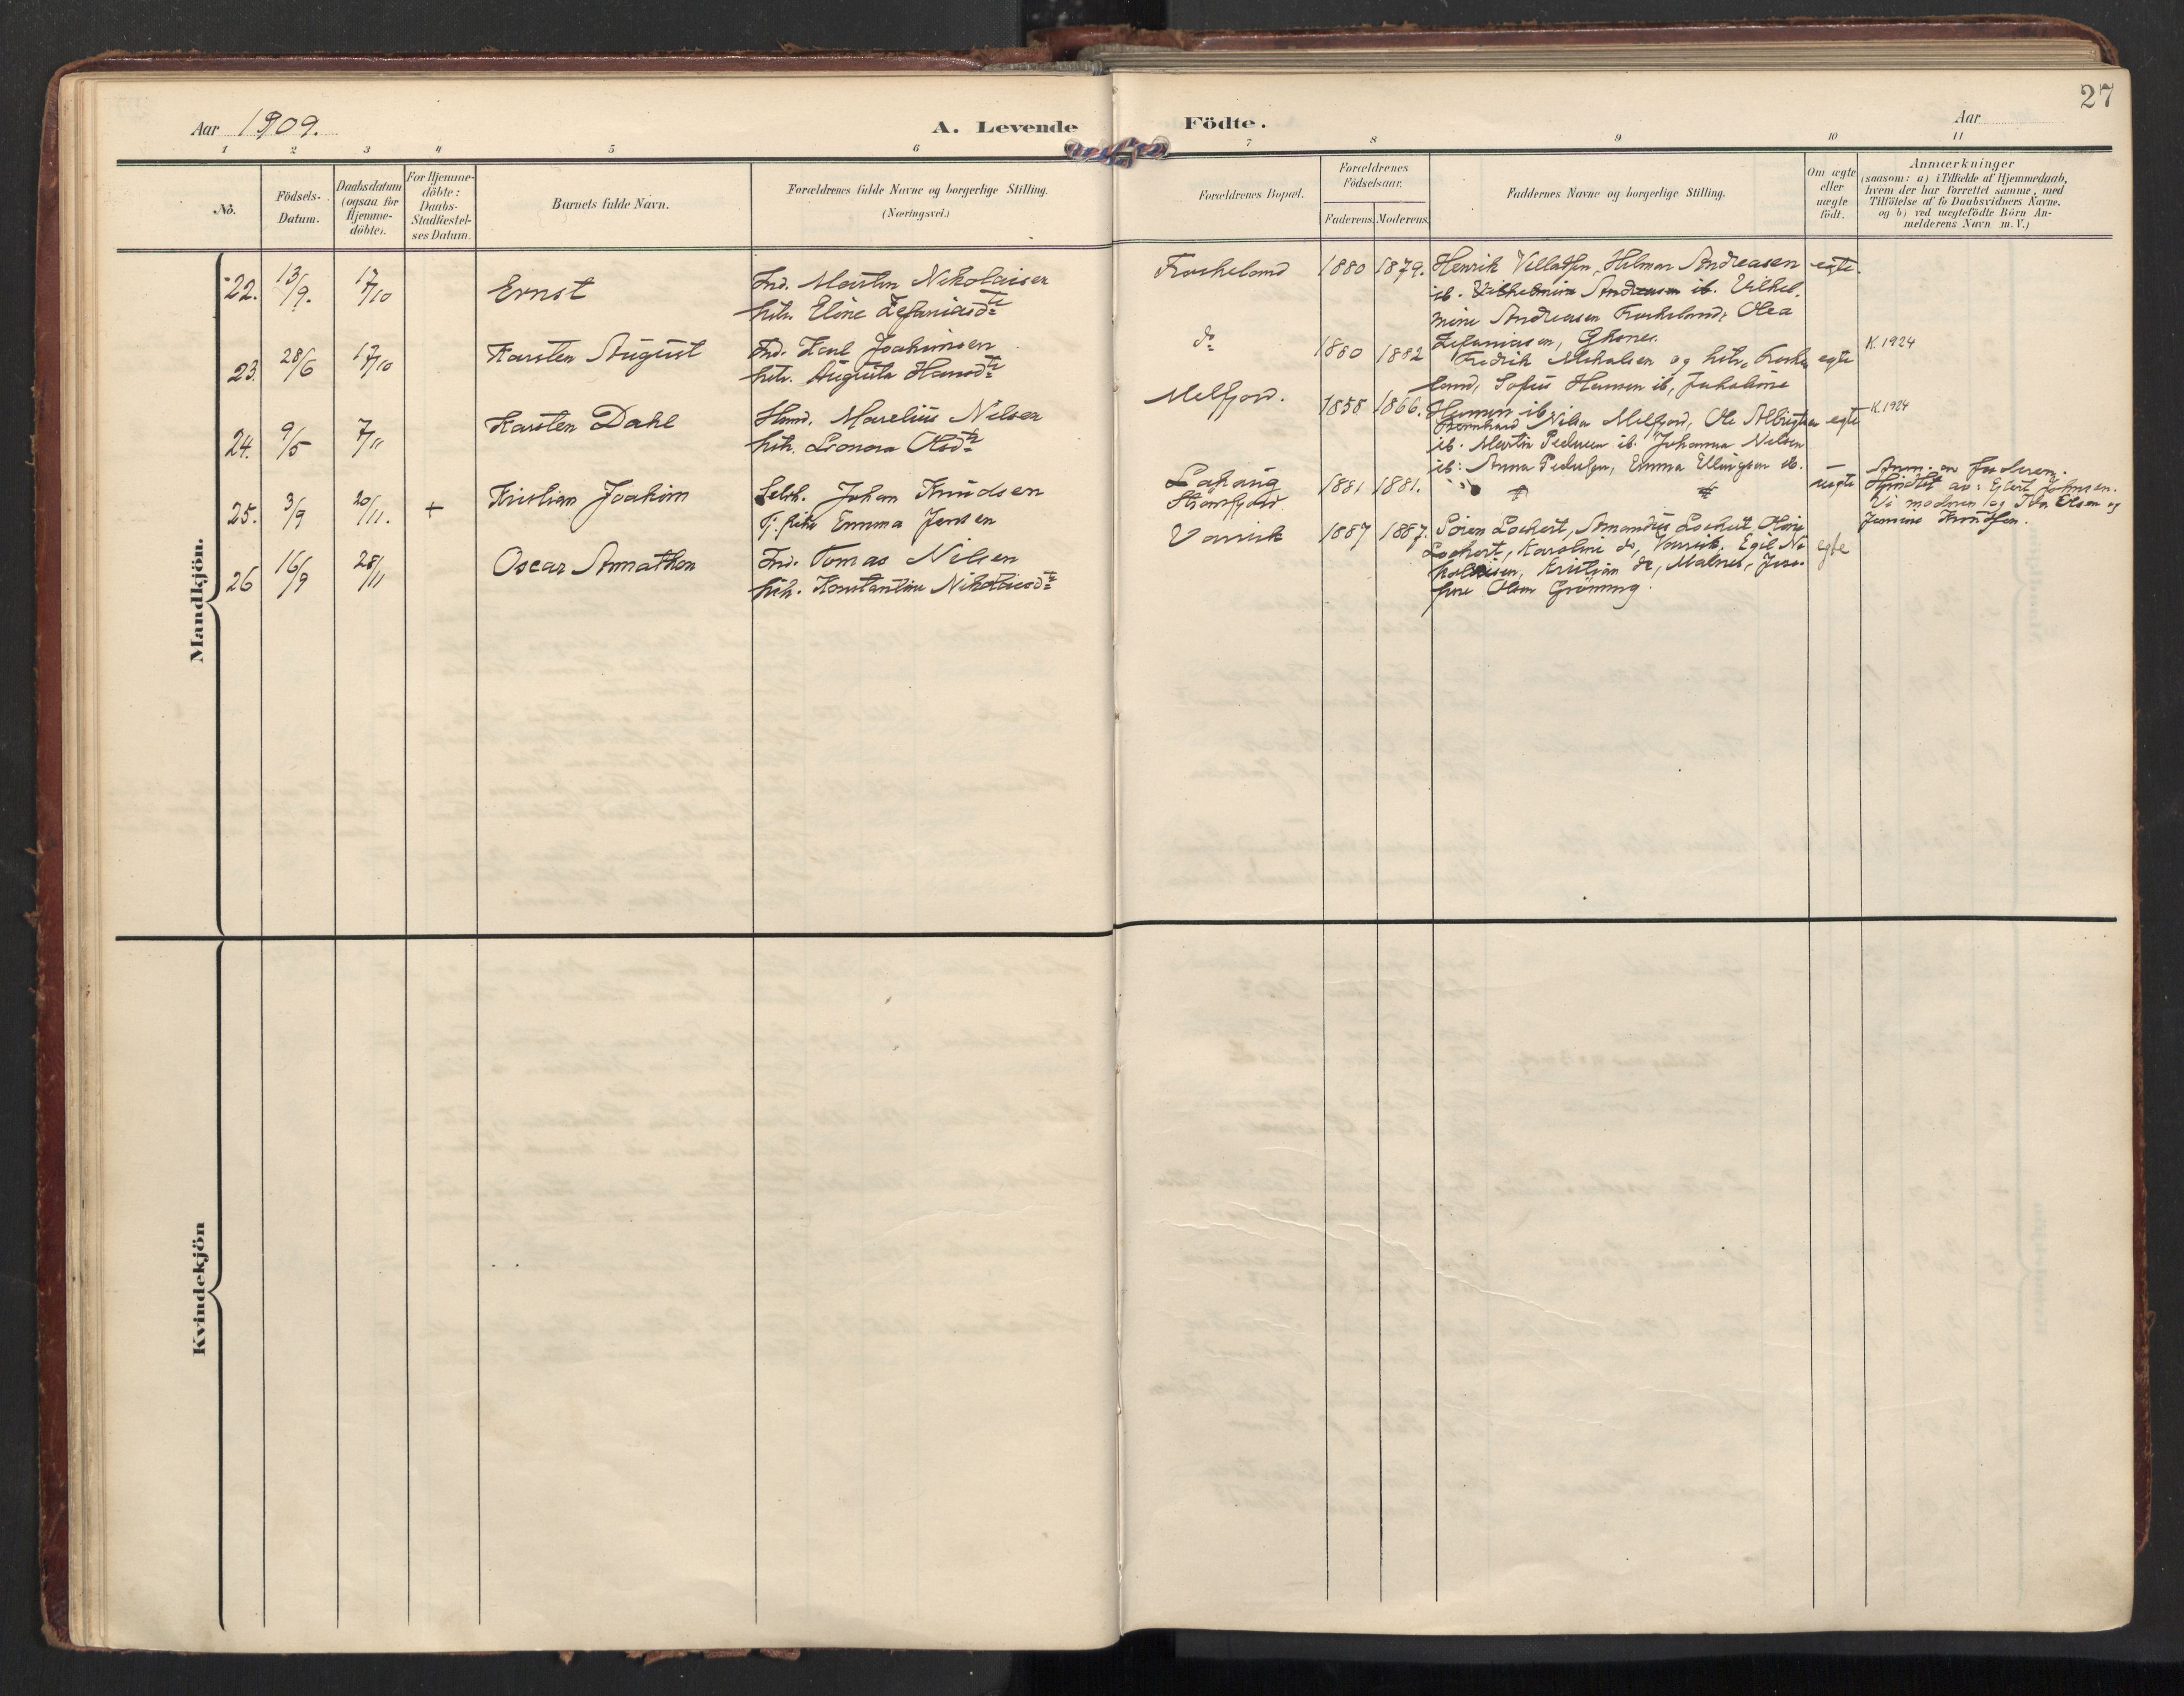 27
Aar 1909.
A. Levende Födte.
Aar
1 2 3 4 5 6 7 8 9 10 11
No.
Födsels-
Datum.
Daabsdatum
(ogsaa for
Hjemme-
döbte).
For Hjemme-
döbte:
Daabs-
Stadfæstel-
ses Datum.
Barnets fulde Navn.
Forældrenes fulde Navne og borgerlige Stilling.
(Næringsvei.)
Forældrenes Bopæl.
Forældrenes
Födselsaar.
Faderens. Moderens.
Faddernes Navne og borgerlige Stilling.
Om ægte
eller
uægte
födt.
Anmærkninger
(saasom: a) i Tilfælde af Hjemmedaab,
hvem der har forrettet samme, med
Tilföielse af to Daabsvidners Navne,
og b) ved uægtefödte Börn An-
melderens Navn m.V.)
Mandkjön.
22. 13/9. 17/10 Ernst
Ind. Martin Nikolaisen
hstr. Eline Zefaniasdtr
1880 1879.
Henrik Villadsen, Hilmar Andreasen
ib. Vilhelmine Andreasen ib. Vilhel-
mine Andreasen Olea
Zefaniasen,
egte.
23. 28/6 17/10 Karsten August
Ind. Karl Joakimsen
hstr. Augusta Hansdtr
do
1880 1882
Fredrik Mikalsen og hstr.
land, Sofus Hansen ib, Jakobine
Hansen ib
egte
K. 1924
24. 9/5 7/11 Karsten Dahl
Hmd. Marelius Nilsen
hstr. Leonora Olsdtr
Melfjord.
1858 1866.
Bernhard Nilsen Melfjord, Ole Albrigtsen
ib. Martin Pedersen ib. Johanna Nilsen
ib: Anna Pedersen, Emma Ellingsen ib.
egte
K. 1924
25. 3/9 20/11. + Kristian Joakim
Selvh. Johan Knudsen
Tj. pike Emma Jensen
1881 1881.
uegte
Anm. av faderen.
av: Johnsen.
moderen og Olsen og
26 16/9 28/11 Oscar Amathon
Ind. Tomas Nilsen
hstr. Konstantine Nikolaisdtr
Vassvik
1887 1887.
Sören Lockert, Amandus Lockert, Oline
Lockert, Karoline do, Vassvik, Egil Ni-
kolaisen, Kristian do, Malnes, Jose-
fine Olsen Grönning.
egte
Kvindekjön